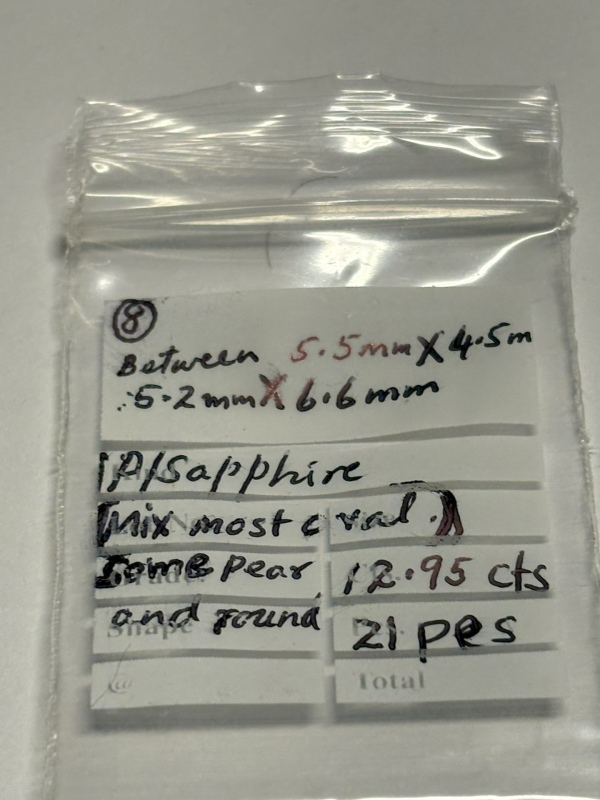 8
Between 5.5mm X 4.5m
5.2mm X 6.6mm
P/Sapphire
Mix most oval
Some pear 12.95 cts
and round 21 pcs
Shape
@ Total